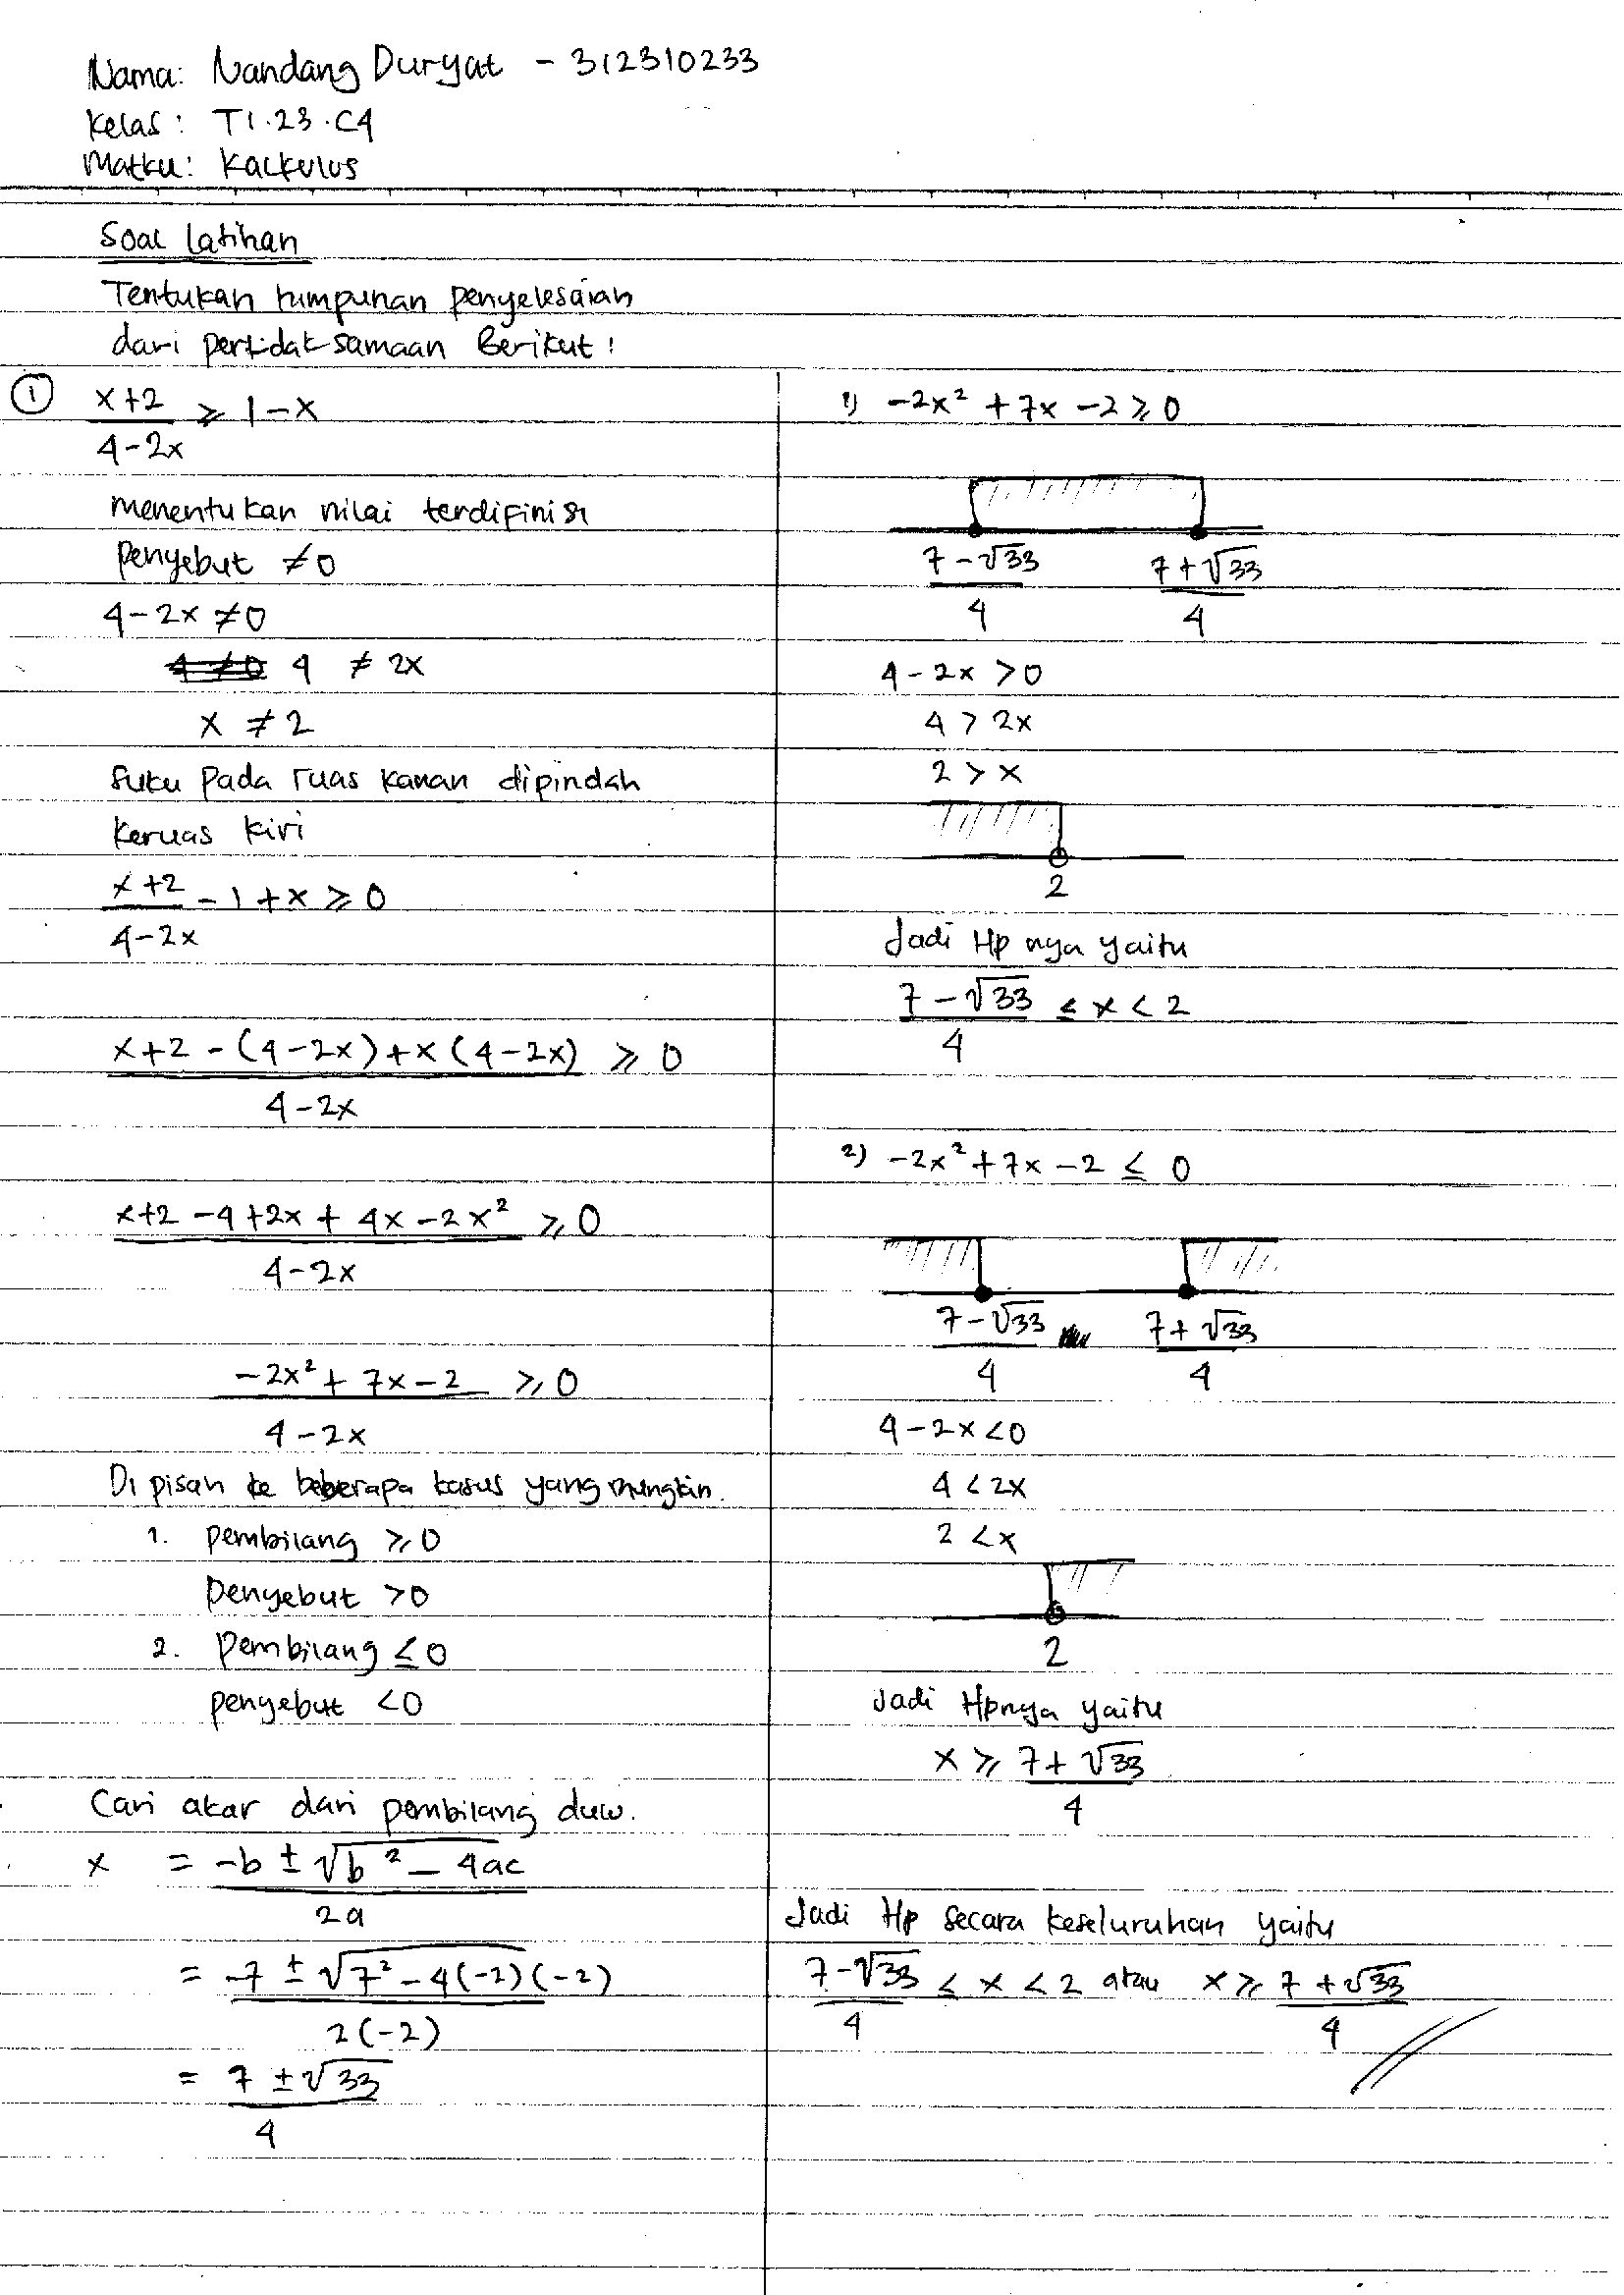 Nama: Nandang Duryat - 312310233
Kelas : TI.23.C4
Matku: Kalkulus
Soal Latihan
Tentukan himpunan penyelesaian
dari pertidaksamaan Berikut!
① x+2 / 4-2x ≥ 1-x
menentukan nilai terdifinisi
Penyebut ≠0
4-2x ≠0
4 ≠ 2x
x ≠ 2
Suku Pada ruas kanan dipindah
Keruas kiri
x+2 / 4-2x - 1 + x ≥ 0
x+2 - (4-2x) + x (4-2x) / 4-2x ≥ 0
x+2 -4+2x + 4x -2x² / 4-2x ≥ 0
-2x² + 7x -2 / 4-2x ≥ 0
Di pisah ke beberapa kasus yang mungkin.
1. Pembilang ≥ 0
Penyebut >0
2. Pembilang ≤ 0
penyebut <0
Cari akar dari pembilang dulu.
x = -b ± √b² - 4ac / 2a
= -7 ± √7² - 4(-2)(-2) / 2(-2)
= 7 ± √33 / 4
1) -2x² + 7x -2 ≥ 0
7 - √33 / 4 7 + √33 / 4
4 - 2x > 0
4 > 2x
2 > x
2
Jadi Hp nya yaitu
7 - √33 / 4 ≤ x < 2
2) -2x² + 7x -2 ≤ 0
7 - √33 / 4 7 + √33 / 4
4 - 2x < 0
4 < 2x
2 < x
2
Jadi Hpnya yaitu
x ≥ 7 + √33 / 4
Jadi Hp secara keseluruhan yaitu
7 - √33 / 4 ≤ x < 2 atau x ≥ 7 + √33 / 4